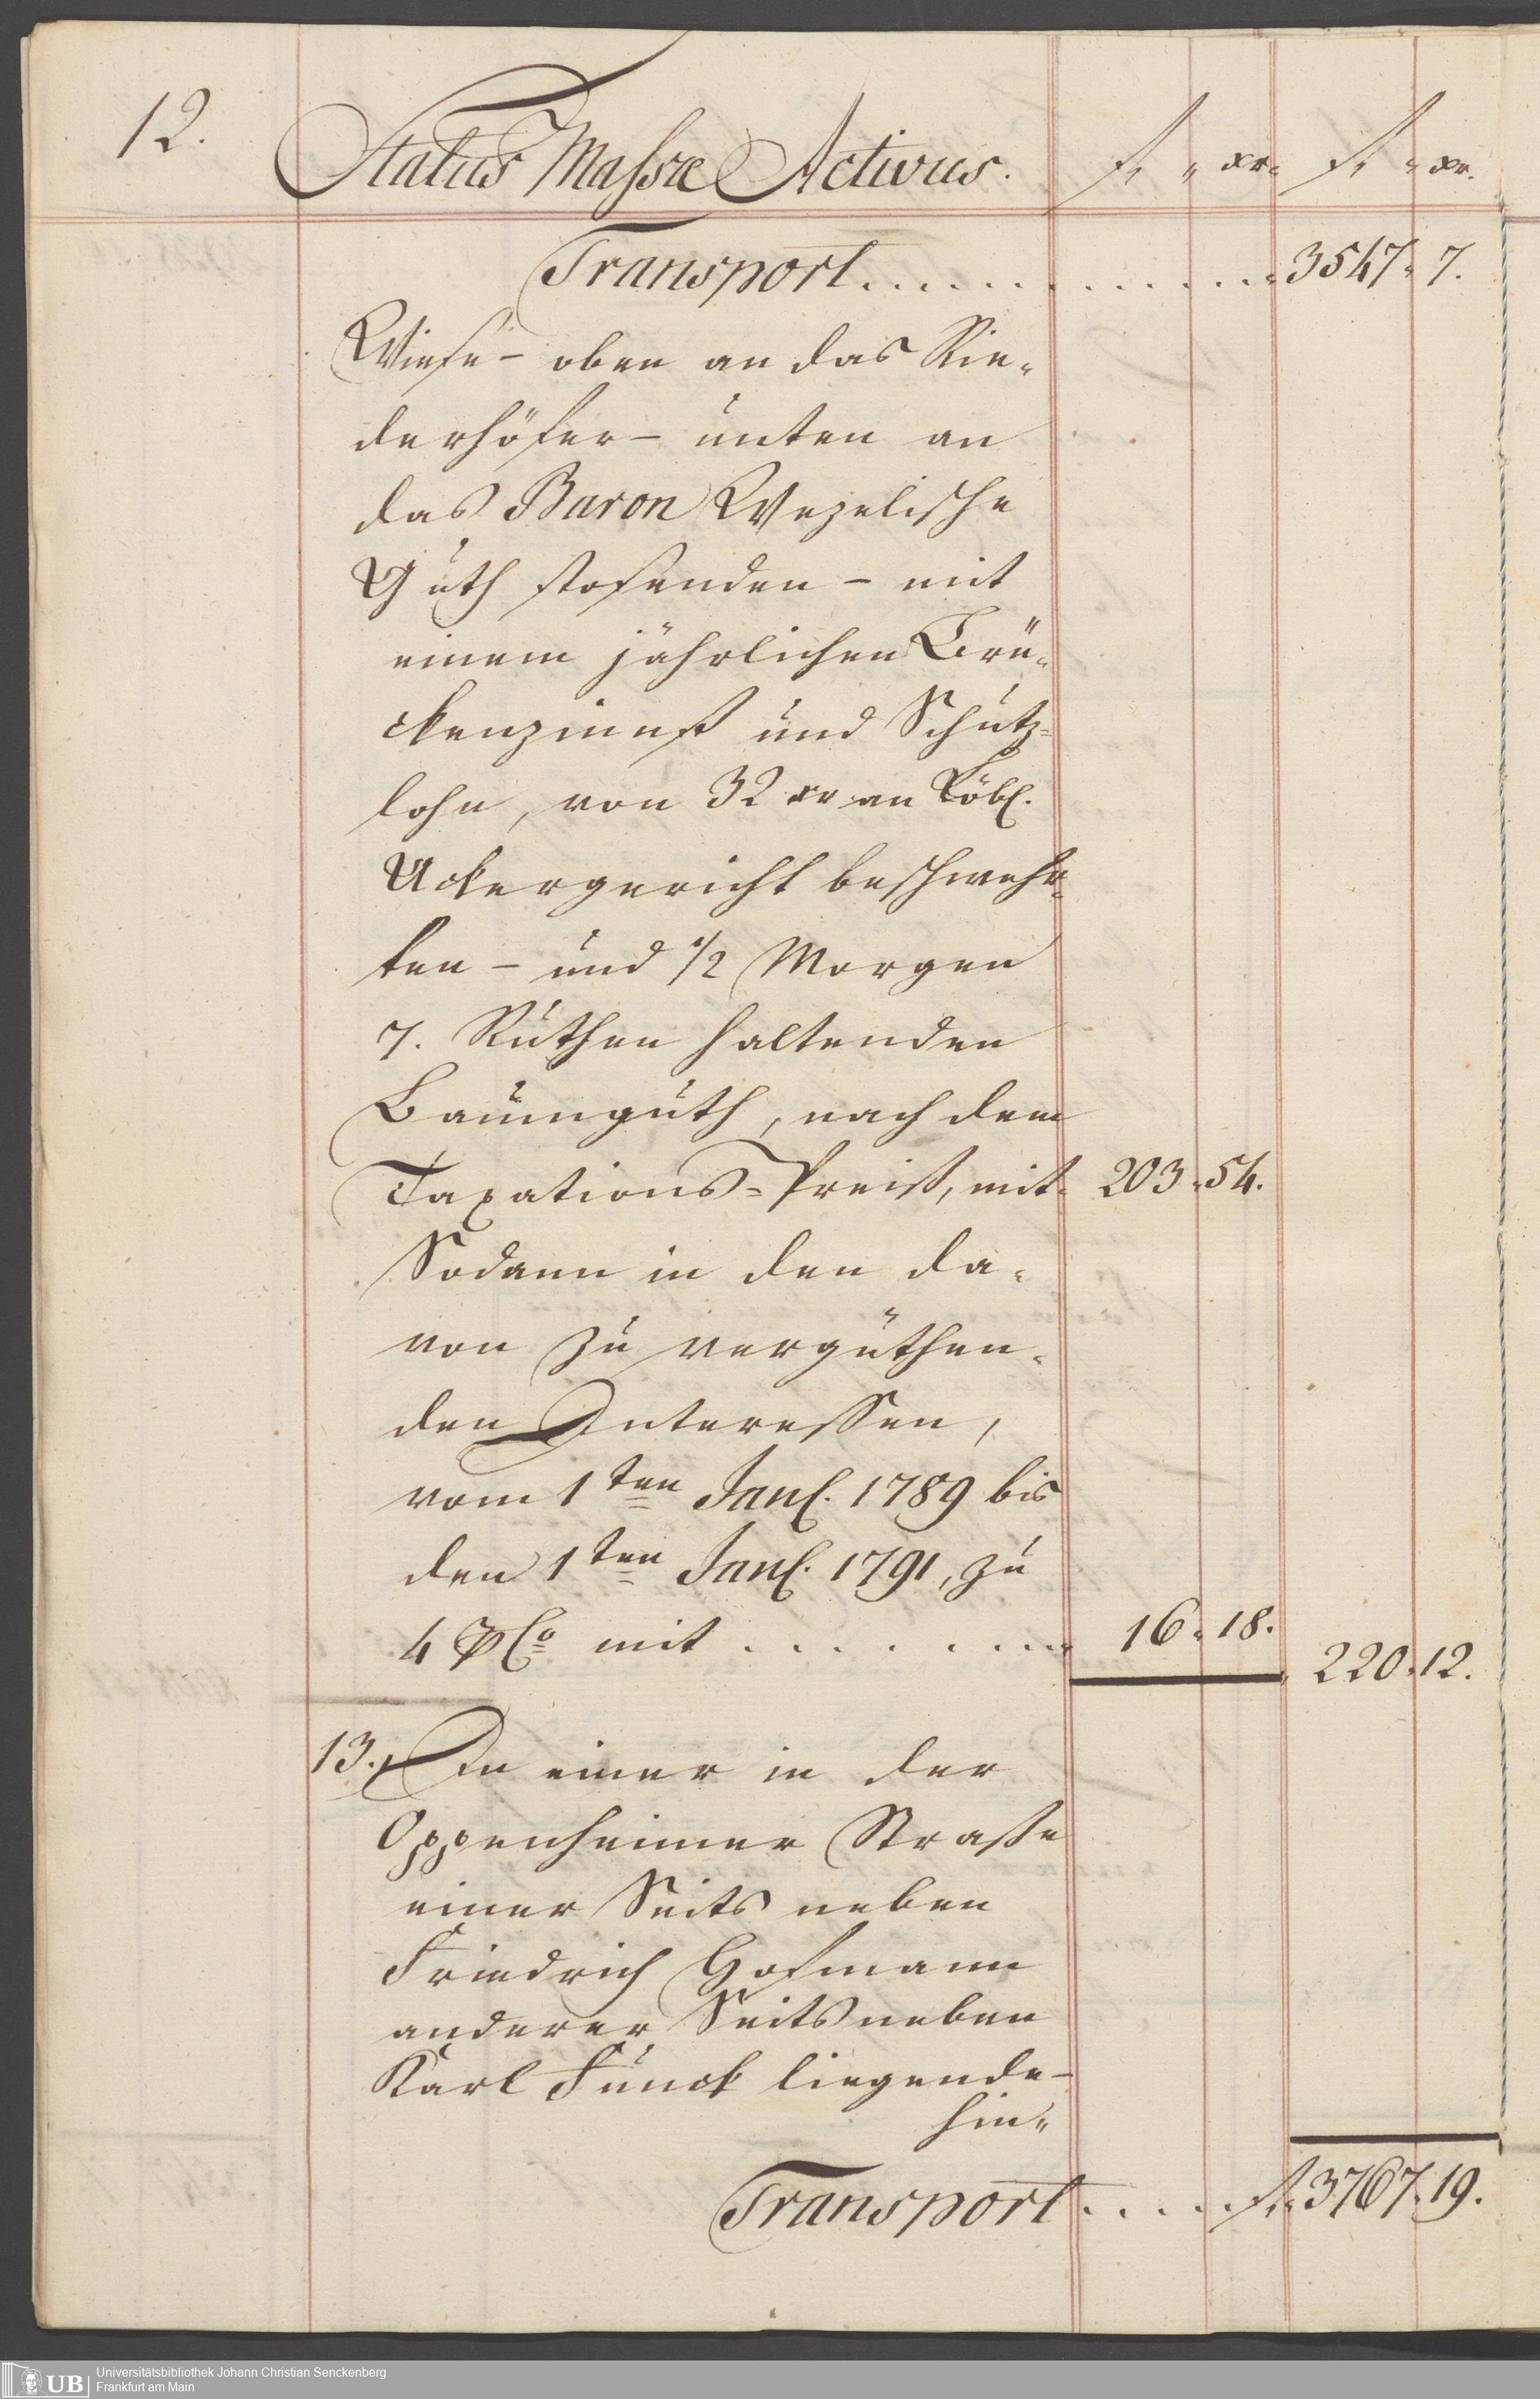 12.
Status Massæ Activus. f. " xr. f. " xr.
Transport . . . . . . . . . . . . . 3547. 7.
Wiese - oben an das Rie-
derhöfer - unten an
das Baron Wezelische
Guth stosenden - mit
einem jährlichen Brü-
ckenzinnß und Schutz-
lohn, von 32 xr an Löbl.
Ackergericht beschwehr-
ten - und 1/2 Morgen
7. Ruthen haltenden
Baumguth, nach dem
Taxations-Preiß, mit. 203.54.
Sodann in den da-
von zu vergüthen-
den Interessen,
vom 1ten Jan. 1789 bis
den 1ten Jan. 1791, zu
4 p Co mit . . . . . . . 16. 18.
220.12.
13. In einer in der
Oppenheimer Strasse
einer Seits neben
Friedrich Hofmann
anderer Seits neben
Karl Funck liegende-
hin-
Transport . . . . . f. 3767.19.
UB Universitätsbibliothek Johann Christian Senckenberg
Frankfurt am Main